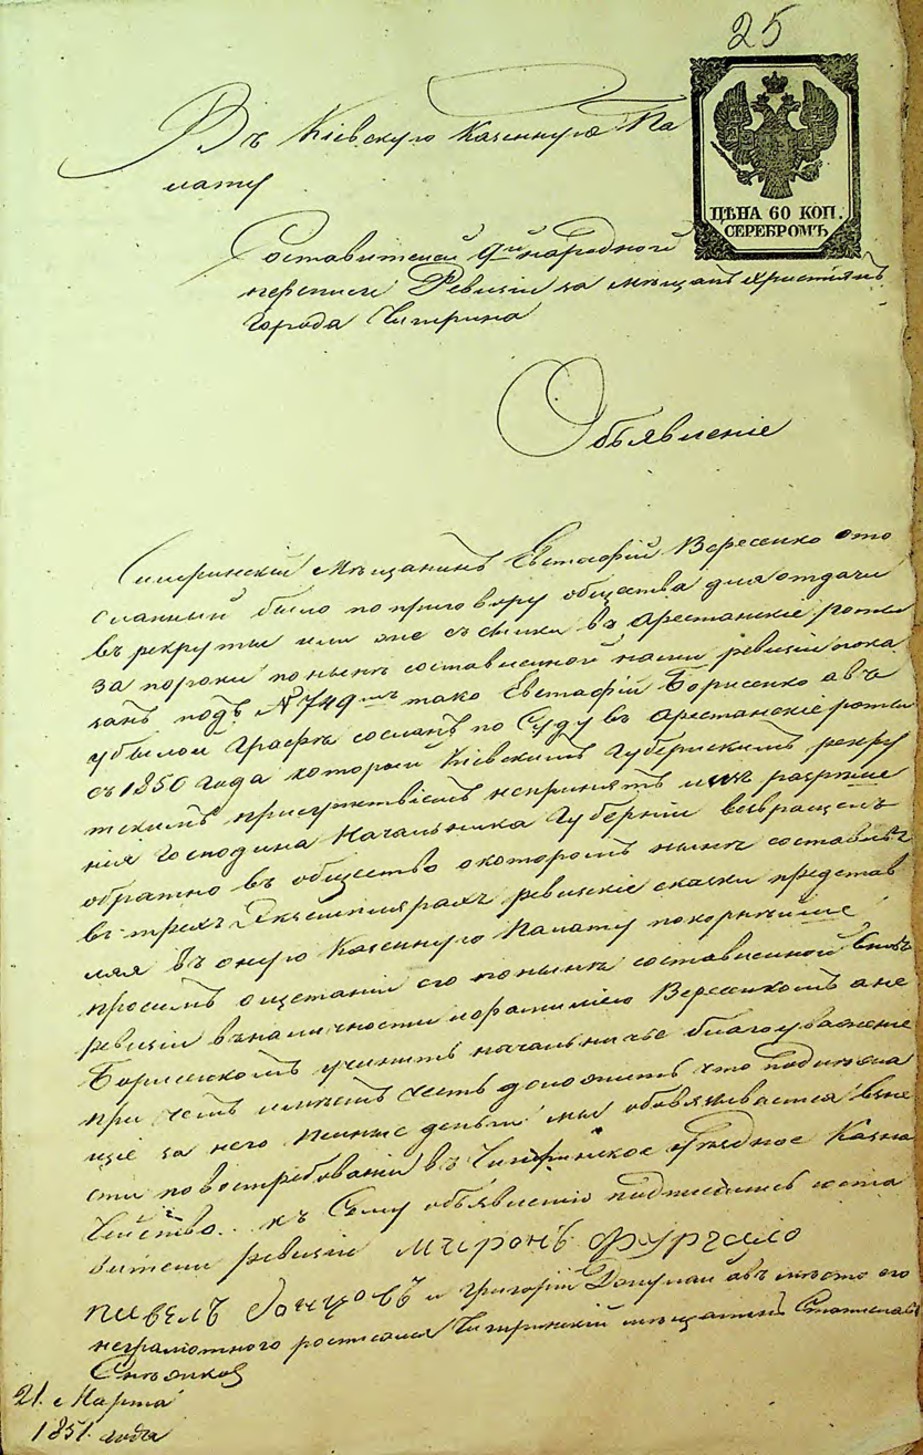 25
ЦѢНА 60 КОП.
СЕРЕБРОМЪ
Въ Кіевскую Казенную Па
лату
Составителей 9й народной
переписи Ревизіи за мѣщанъ христіянъ
города Чигрина
Объявленіе
Чигринскій мѣщанинъ Евстафій Вересенко ото
сланный было по приговору общества для отдачи
въ рекруты или же ссылки въ арестанскіе роты
за пороки по нынѣ составленной нами ревизіи пока
занъ подъ № 749мъ тако Евстафій Борисенко а въ
убылой графѣ сосланъ по Суду въ арестанскіе роты
съ 1850 года который Кіевскимъ Губернскимъ рекру
тскимъ присутствіемъ непринятъ и
нія Господина Начальника Губерніи возвращенъ
обратно въ общество о которомъ нынѣ составивъ
въ трехъ Экземплярахъ ревизкіе сказки представ
ляя въ оную Казенную Палату покорнѣйше
просимъ о щетаніи его по нынѣ составленной
ревизіи въ наличности и фамиліею Вересенкомъ а не
Борисенкомъ учинить начальничье благоуваженіе
при чемъ имѣемъ честь доложить что подлежа
щіе за него деньги мы обовязываемся взне
сти по востребованіи въ Чигринское Уѣздное Казна
чейство.. къ Сему объявленію подписались соста
вители ревизіи Миронъ
Павелъ и Григорій а въ мѣсто его
неграмотного росписался Чигринскій мѣщанинъ Станиславъ
21. Марта
1851. года